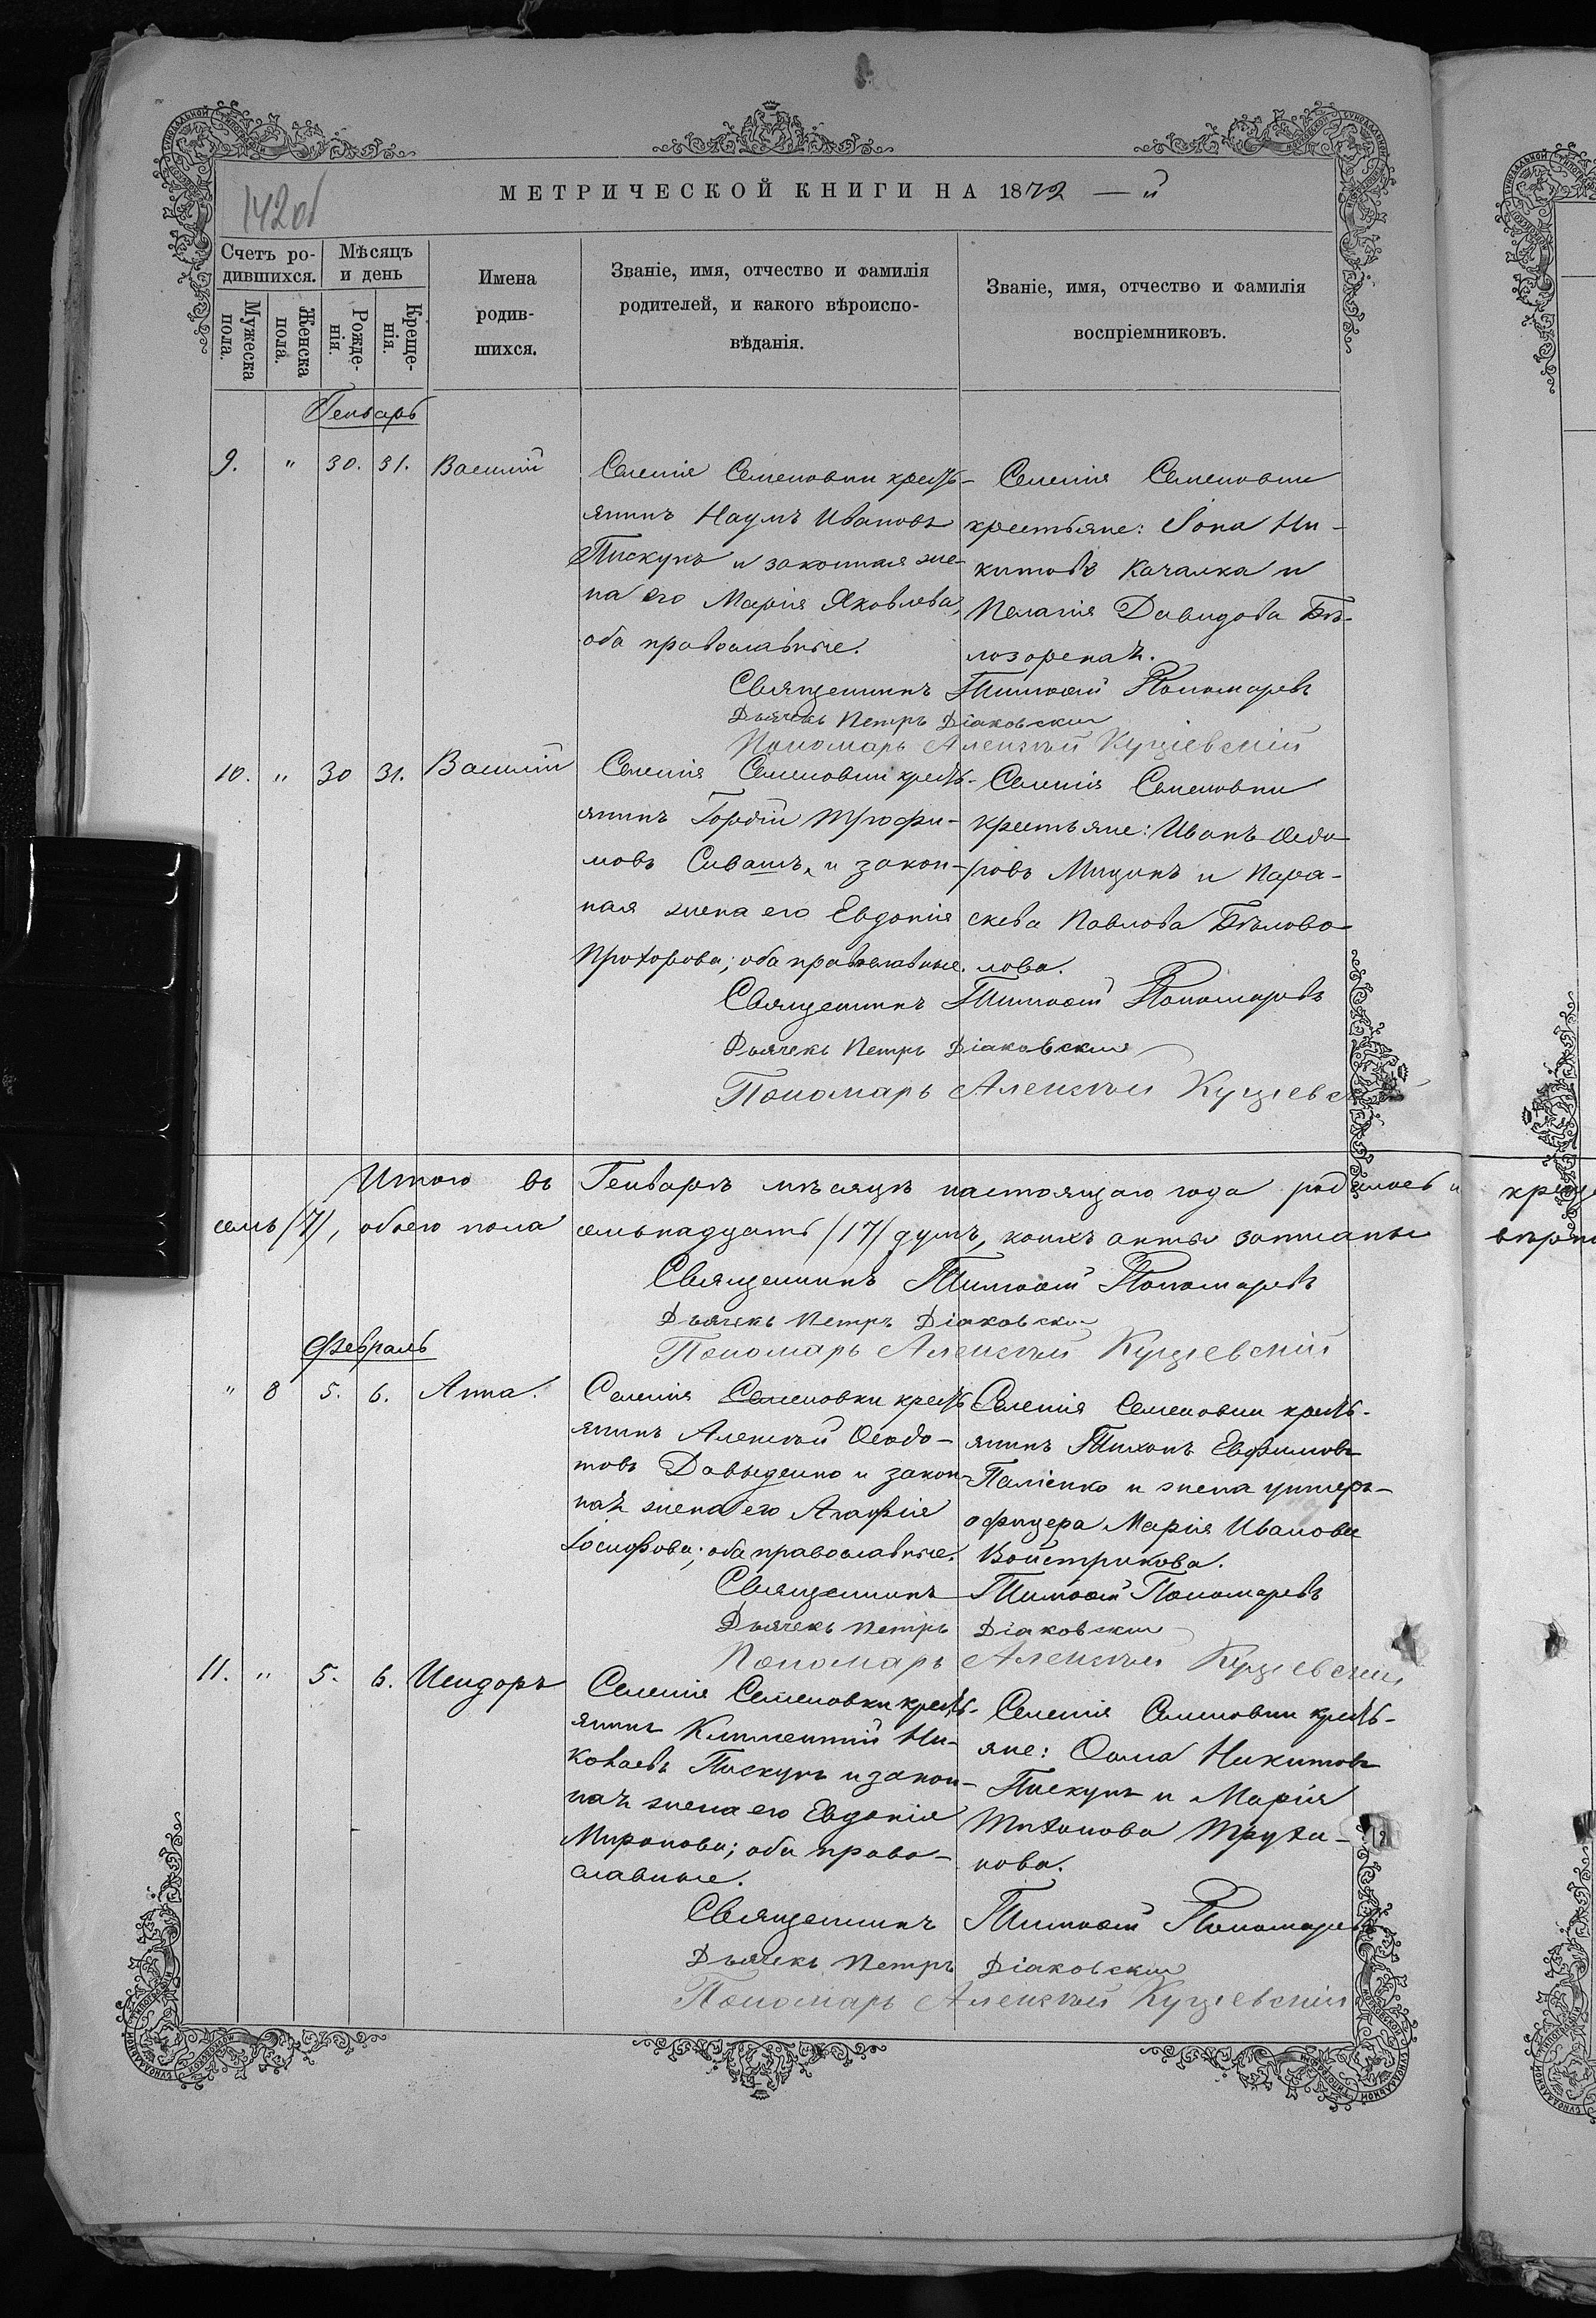 142об
МЕТРИЧЕСКОЙ КНИГИ НА 1872 — й
Счетъ ро-
дившихся.
Мѣсяцъ
и день
Мужеска
пола.
Женска
пола.
Рожде-
нія.
Креще-
нія.
Имена
родив-
шихся.
Званіе, имя, отчество и фамилія
родителей, и какого вѣроиспо-
вѣданія.
Званіе, имя, отчество и фамилія
воспріемниковъ.
Генварь
9. " 30. 31. Василій
Селенія Семеновки кресть-
янинъ Наумъ Ивановъ
Пискунъ и законная же-
на его Марія Яковлева,
оба православные.
Селенія Семеновки
крестьяне: Іона Ни-
китовъ Качалка и
Пелагія Давидова Бѣ-
лозорская.
Священникъ Тимоѳей Пономаревъ
Дьячекъ Петръ Діаковскій
Пономарь Алексѣй Куціевскій
10. " 30 31. Василій
Селенія Семеновки кресть-
янинъ Гордій Трофи-
мовъ Сивашъ, и закон-
ная жена его Евдокія
Прохорова; оба православные.
Селенія Семеновки
крестьяне: Иванъ Ѳедо-
ровъ Мицикъ и Пара-
скева Павлова Бѣлово-
лова.
Священникъ Тимоѳей Пономаревъ
Дьячекъ Петръ Діаковскій
Пономарь Алексѣй Куціевскій
Итого въ Генварѣ мѣсяцѣ настоящаго года родилось и
семь /7/, обоего пола семьнадцать /17/ душъ, коихъ акты записаны
Священникъ Тимоѳей Пономаревъ
Дьячекъ Петръ Діаковскій
Пономарь Алексѣй Куціевскій
Февраль
" 8 5. 6. Анна.
Селенія Семеновки кресть
янинъ Алексѣй Ѳеодо-
товъ Давыденко и закон-
ная жена его Агафія
Іосифова; оба православные.
Селенія Семеновки кресть-
янинъ Тихонъ Евфимовъ
Паліенко и жена унтеръ-
офицера Марія Иванова
Войстрикова.
Священникъ Тимоѳей Пономаревъ
Дьячекъ Петръ Діаковскій
Пономарь Алексѣй Куціевскій
11. " 5. 6. Исидоръ
Селенія Семеновки кресть-
янинъ Климентій Ни-
колаевъ Пискунъ и закон-
ная жена его Евдокія
Миронова; оба право-
славные.
Селенія Семеновки кресть-
яне: Ѳома Никитовъ
Пискунъ и Марія
Тихонова Труха-
нова.
Священникъ Тимоѳей Пономаревъ
Дьячекъ Петръ Діаковскій
Пономарь Алексѣй Куціевскій